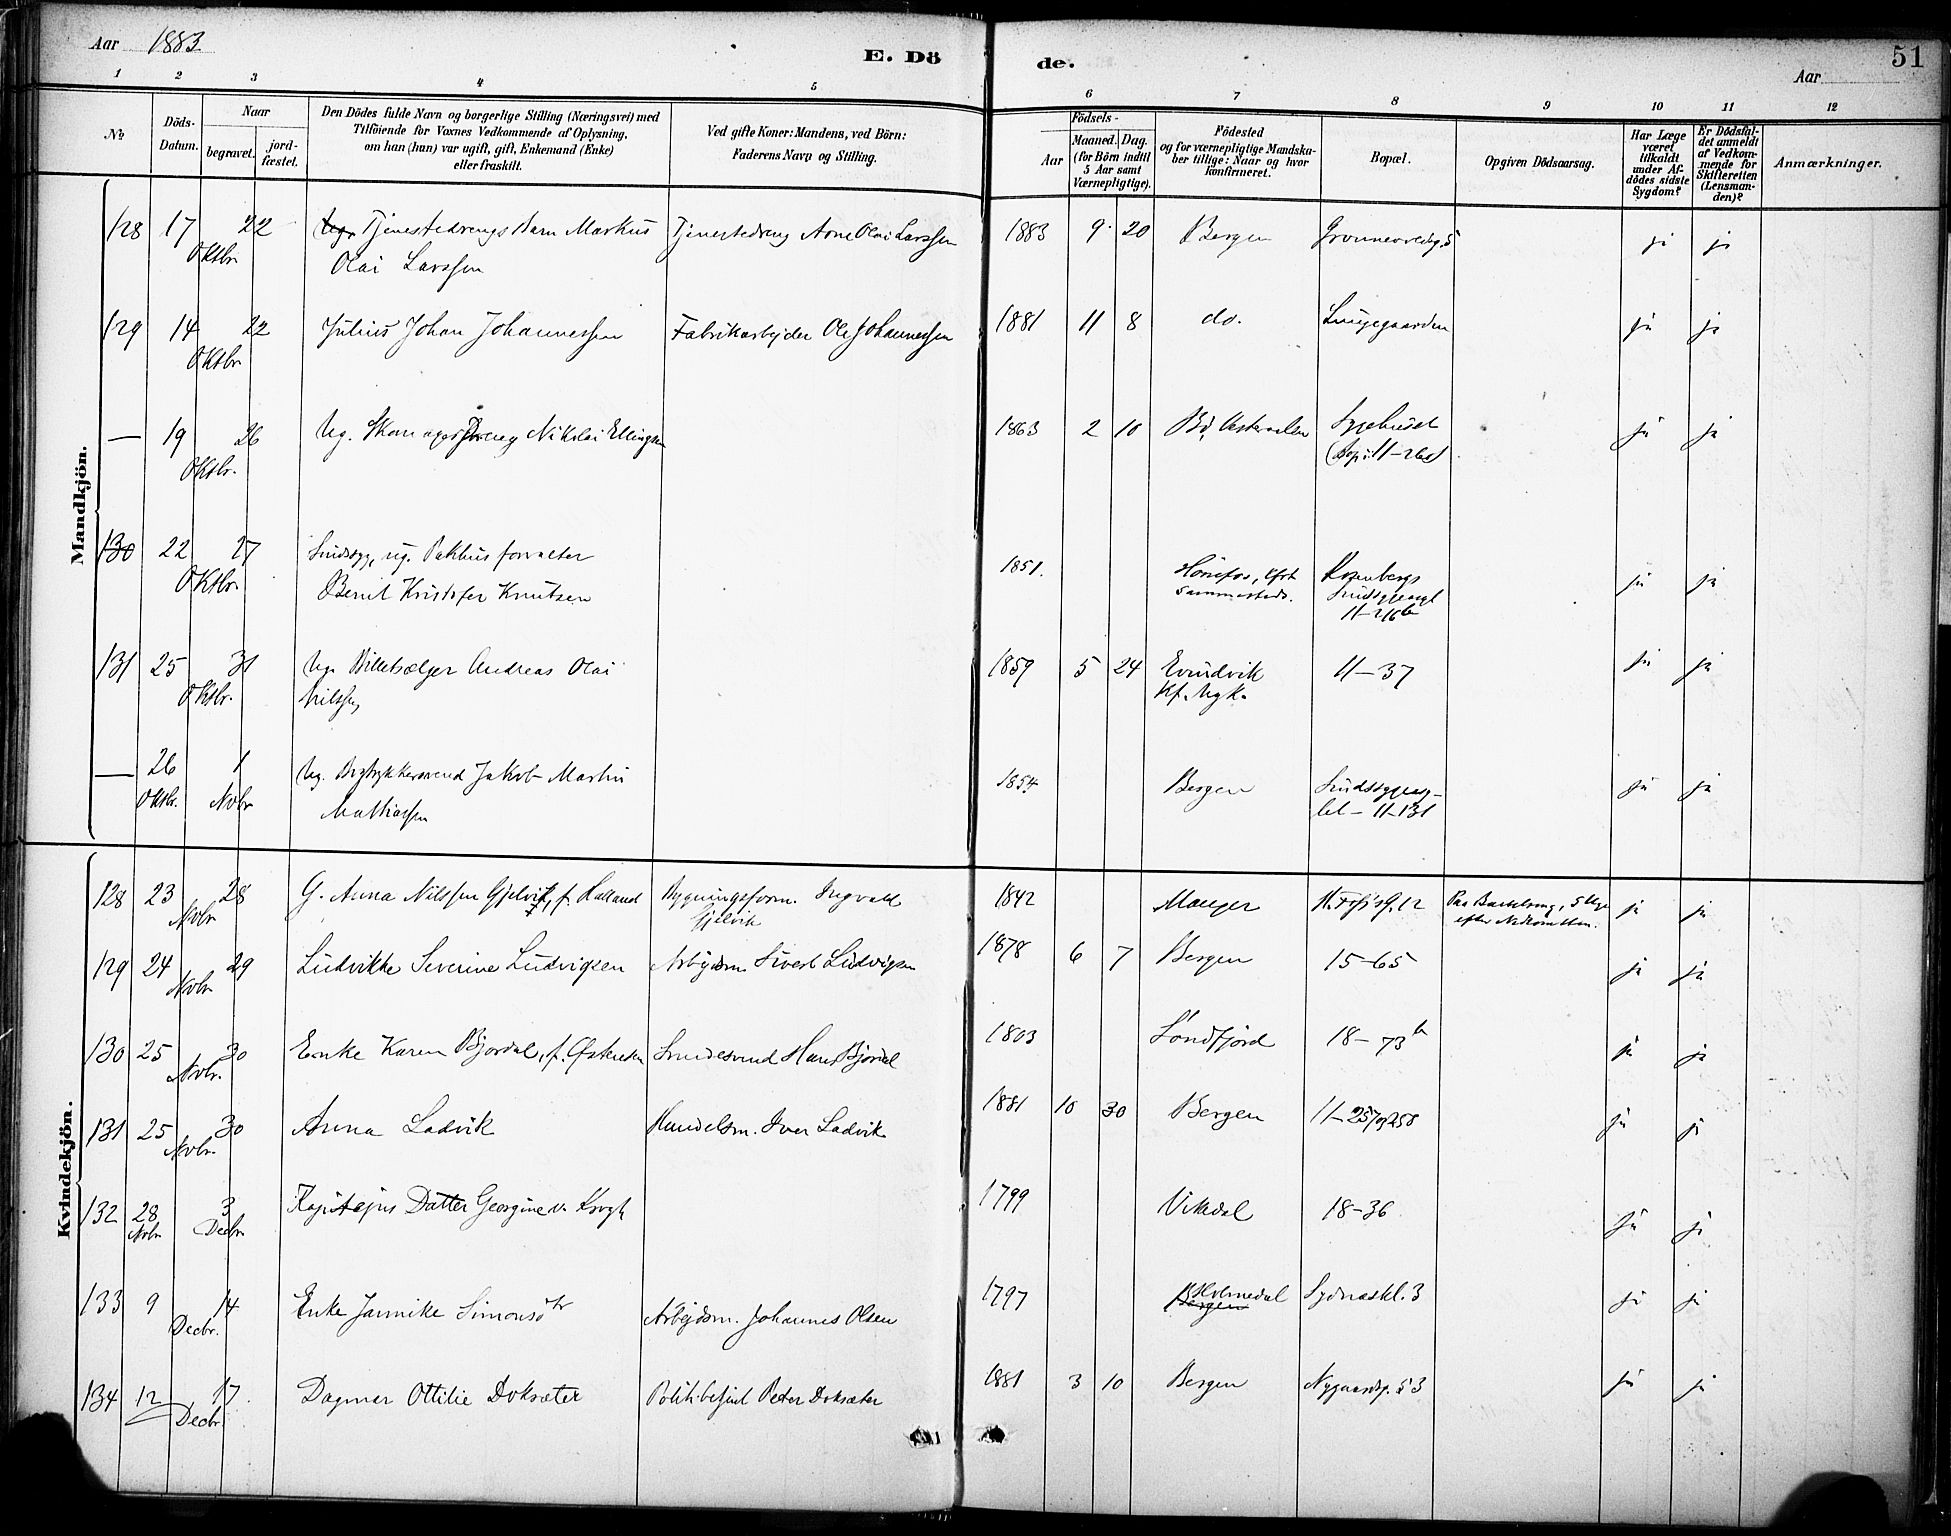 Aar 1883.
E. Dö
de.
Aar
51
1 2 3 4 5 6 7 8 9 10 11 12
No
Döds-
Datum.
Naar
begravet.
jord-
fæstet.
Den Dödes fulde Navn og borgerlige Stilling (Næringsvei) med
Tilföiende for Voxnes Vedkommende af Oplysning,
om han (hun) var ugift, gift, Enkemand (Enke)
eller fraskilt.
Ved gifte Koner: Mandens, ved Börn:
Faderens Navn og Stilling.
Födsels-
Aar
Maaned. Dag.
(for Börn indtil
5 Aar samt
Værnepligtige).
Födested
og for værnepligtige Mandska-
ber tillige: Naar og hvor
konfirmeret.
Bopæl.
Opgiven Dödsaarsag.
Har Læge
været
tilkaldt
under Af-
dödes sidste
Sygdom?
Er Dödsfal-
det anmeldt
af Vedkom-
mende for
Skifteretten
(Lensman-
den)?
Anmærkninger.
Mandkjön.
128 17 22 Tjenestedrengs Barn Markus Tjenestedreng Arne Olai Larssen 1883 9. 20 Bergen ja ja
Oktbr. Olai Larssen
129 14 22 Julius Johan Johannessen Fabrikarbejder Ole Johannessen 1881 11 8 do. Lungegaarden ja ja
Oktbr.
— 19 26 Ug. Nikolai Ellingsen 1863 2 10 Bö, Vesteraalen Sygehuset ja ja
Oktbr.
130 22 27 Sindssyg, ug. Pakhusforvalter 1851. Rosenbergs ja ja
Oktbr. Bernt Kristofer Knutsen sammesteds. 11-216b
131 25 31 Ug. Billetsælger Andreas Olai 1859 5 24 Evindvik 11-37 ja ja
Oktbr. Nilssen Kf. Nyk.
— 26 1 Ug. Bogtrykkersvend Jakob Martin 1854 Bergen Sindssygeasy- ja ja
Oktbr. Novbr. Mathiassen let - 11-131
Kvindekjön.
128 23 28 G. Anna Nilssen Gjelvik, f. Halland Bygningsform. Ingvald 1842 Manger Paa Barselseng, 5 Uger ja ja
Novbr. Gjelvik efter Nedkomsten.
129 24 29 Ludvikke Severine Ludvigsen Arbejdsm. Sivert Ludvigsen 1878 6 7 Bergen 15-65 ja ja
Novbr.
130 25 30 Enke Karen Bjordal, f. Smedesvend Hans Bjordal 1803 Söndfjord 18-73b ja ja
Novbr.
131 25 30 Anna Ladvik Handelsm. Iver Ladvik 1881 10 30 Bergen 11-257 og 258 ja ja
Novbr.
132 28 3 Kapitejns Datter Georgine v. Krogh 1799 Vikedal 18-36 ja ja
Novbr. Decbr.
133 9 14 Enke Jannike Simonsdtr Arbejdsm. Johannes Olsen 1797 Holmedal Sydneskl. 3 ja ja
Decbr. Bergen
134 12 17 Dagmar Ottilie Doksæter Politibetjent Peter Doksæter 1881 3 10 Bergen Nygaardsg. 53 ja ja
Decbr.